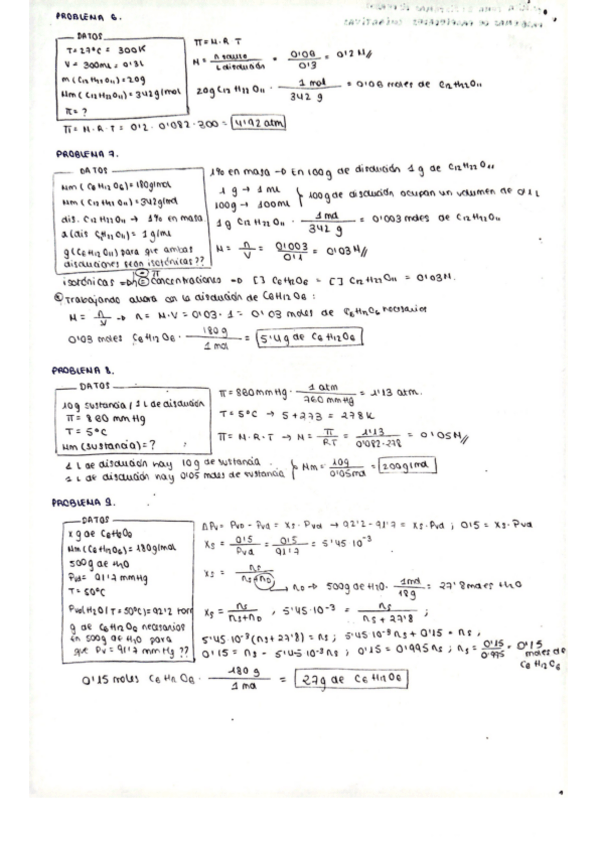 PROBLEMA 6.
DATOS
T=27ºC = 300K
V = 300mL = 0'3L
m(C12H22O11)=20g
Mm(C12H22O11)=342g/mol
π=?
π=M·R·T
M = n soluto / L disolución = 0'06 / 0'3 = 0'2 M//
20g C12H22O11 · 1 mol / 342 g = 0'06 moles de C12H22O11
π = M·R·T = 0'2 · 0'082·300 = 4'92 atm
PROBLEMA 7.
DATOS
Mm(C6H12O6)=180g/mol
Mm(C12H22O11)=342g/mol
dis. C12H22O11 → 1% en masa
d(dis C12H22O11)= 1g/mL
g(C6H12O6) para que ambas
disoluciones sean isotónicas??
1% en masa → En 100g de disolución 1g de C12H22O11
1g → 1mL
100g → 100mL
100g de disolución ocupan un volumen de 0'1L
1g C12H22O11 · 1mol / 342 g = 0'003 moles de C12H22O11
M = n / V = 0'003 / 0'1 = 0'03M//
isotónicas = π = concentraciones → [ ] C6H12O6 = [ ] C12H22O11 = 0'03M.
Trabajando ahora con la disolución de C6H12O6:
M = n / V → n = M·V = 0'03 · 1 = 0'03 moles de C6H12O6 necesarios
0'03 moles C6H12O6 · 180g / 1mol = 5'4g de C6H12O6
PROBLEMA 8.
DATOS
10g sustancia / 1L de disolución
π = 860 mmHg
T = 5ºC
Mm(sustancia)=?
π=860mmHg · 1 atm / 760mmHg = 1'13 atm.
T = 5ºC → 5+273 = 278K
π = M·R·T → M = π / R·T = 1'13 / 0'082·278 = 0'05M//
1L de disolución hay 10g de sustancia
1L de disolución hay 0'05 moles de sustancia
Mm = 10g / 0'05mol = 200g/mol
PROBLEMA 9.
DATOS
x g de C6H12O6
Mm(C6H12O6)=180g/mol
500g de H2O
Pvd = 91'7mmHg
T = 50ºC
Pvo(H2O/T=50ºC)=92'2 torr
g de C6H12O6 necesarios
en 500g de H2O para
que Pv=91'7mmHg??
ΔPv = Pvo - Pvd = Xs·Pvd → 92'2-91'7 = Xs·Pvd ; 0'5 = Xs·Pvd
Xs = 0'5 / Pvd = 0'5 / 91'7 = 5'45·10⁻³
Xs = ns / ns+no → no → 500g H2O · 1mol / 18g = 27'8moles H2O
Xs = ns / ns+no , 5'45·10⁻³ = ns / ns + 27'8 ;
5'45·10⁻³(ns+27'8)= ns ; 5'45·10⁻³ns + 0'15 = ns ,
0'15 = ns - 5'45·10⁻³ns ; 0'15 = 0'995ns ; ns = 0'15 / 0'995 = 0'15 moles de C6H12O6
0'15 moles C6H12O6 · 180 g / 1 mol = 27g de C6H12O6